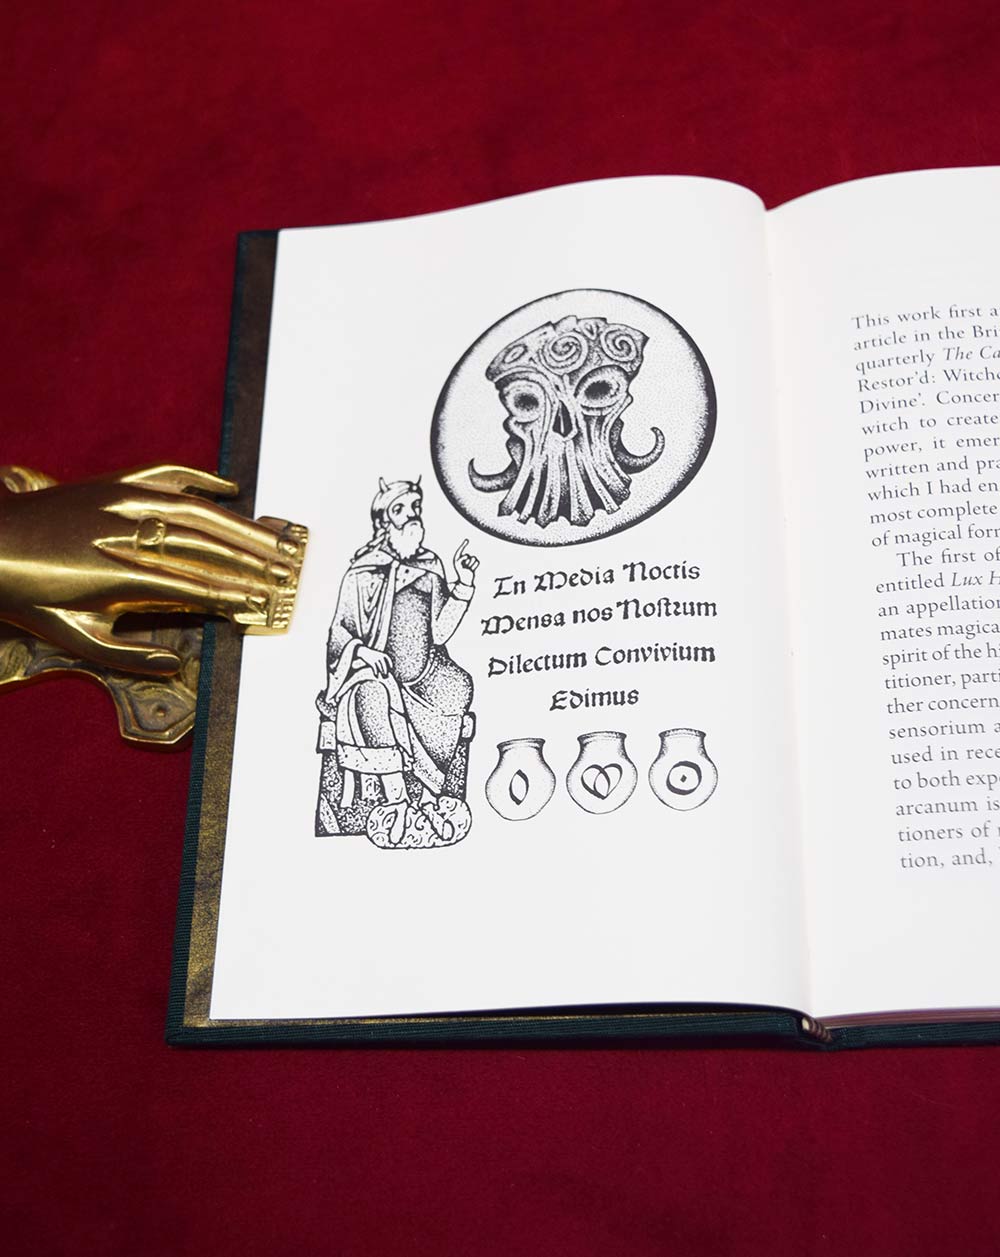 In Media Noctis
Mensa nos Nostrum
Dilectum Convivium
Edimus
This work first
article in the
quarterly The
Restor'd:
Divine'. Concer
witch to create
power, it emer
written and
which I had en
most complete
of magical form
The first of
entitled Lux
an appellation
mates magical
spirit of the
titioner, parti
ther concern
sensorium
used in rece
to both expe
arcanum is
tioners of
tion, and,